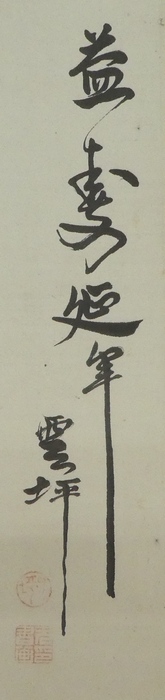 益壽延年
雲坪